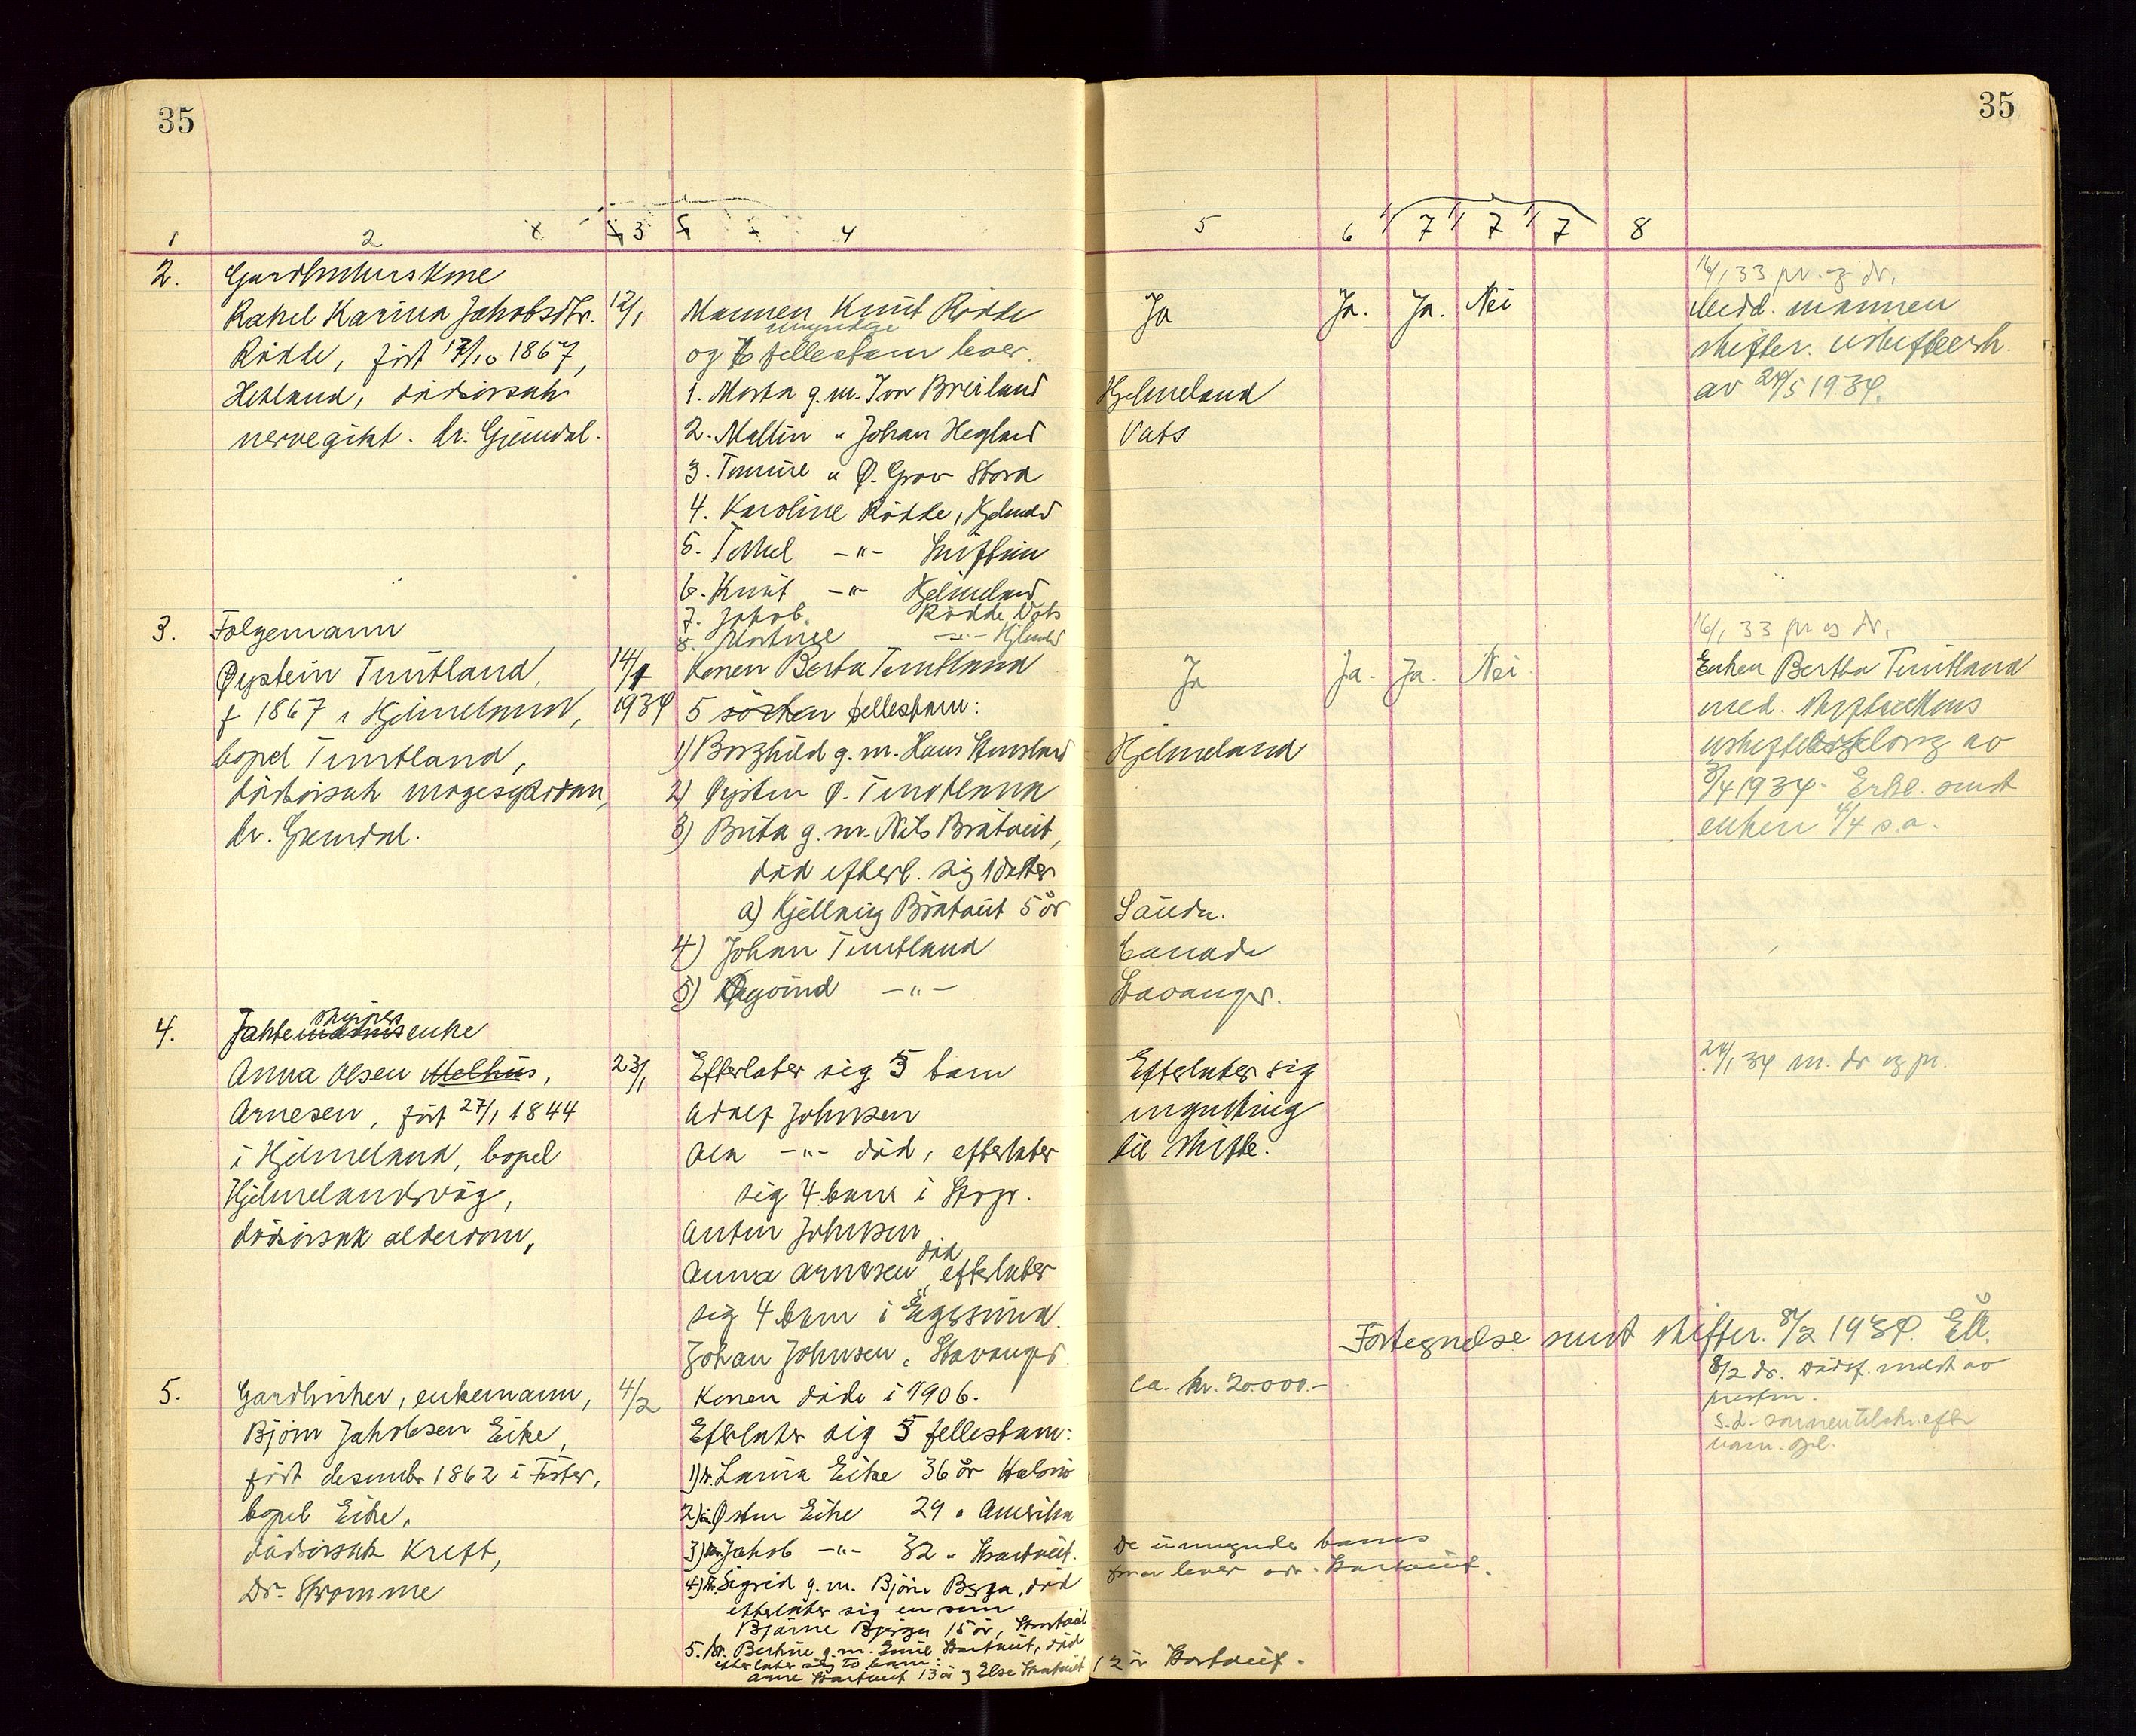 35
35
1 2 3 4
5 6 7 7 7 8
2. Gardbrukerskone
Rakel Karina Jakobsdtr. 12/1
Rödde, født 17/10 1867,
Hetland, dødsårsak
nervegikt. dr. Gjemdal.
Mannen Knut Rödde
umyndige
og fellesbarn lever.
1. Marta g.m. Ivar Breiland
2. Mallin " Johan Hegland
3. Tomine " Ø. Grov Stord
4. Karoline Rödde, Hjelmeld
5. Torkel -"-
6. Knut -"- Hjelmeland
7. Jakob. Rödde, Vats
8. Martine -"- Hjelmeld
Ja Ja. Ja. Nei
Hjelmeland
Vats
16/1 33 pr. og dr.
Medd. mannen
skifter. uskifteerk.
av 24/5 1934.
3. Følgemann
Øystein Tuntland, 14/1
f 1867 i Hjelmeland, 1934
bopel Tuntland,
dødsårsak
dr. Gjemdal.
Konen Berta Tuntland
5 fellesbarn:
1) Borghild g.m. Hans
2) Øystein Ø. Tuntland
3) Brita g.m. Nils Bråtveit,
død efterl. sig 1 datter
a) Kjellaug Bråtveit 5 år
4) Johan Tuntland
5) Øyvind -"-
Ja Ja. Ja. Nei.
Hjelmeland
Sauda.
Canada
Stavanger.
16/1 33 pr og dr.
Enken Bertha Tuntland
med. skifterettens
av
3/4 1934. Erkl. sendt
enken 4/4 s.a.
4. skippers
Jakte enke
Anna Olsen Melhus, 23/1
Arnesen, født 27/1 1844
i Hjelmeland, bopel
Hjelmelandsvåg,
dødsårsak alderdom.
Efterlater sig 5 barn
Adolf Johnsen
Ola -"- død, efterlater
sig 4 barn i Stvgr.
Anton Johnsen
død
Anna Arnesen, efterlater
sig 4 barn i Egersund.
Johan Johnsen, Stavanger
Efterlater sig
ingenting
til skifte.
24/1 34 m. dr og pr.
Fortegnelse sendt skifter. 8/2 1934. Ell.
5. Gardbruker, enkemann, 4/2
Bjørn Jakobsen Eike,
født desember 1862 i Fister,
bopel Eike.
dødsårsak Kreft,
Dr. Strømme
Konen døde i 1906.
Efterlater sig 5 fellesbarn:
1) Laura Eike 36 år
2) Østen Eike 29 " Amerika
3) Jakob -"- 32 "
4) Sigrid g.m. Bjørn Berga, død
efterlater sig en sønn
Bjarne Berga 15 år,
5. Bertine g.m. Emil, død
efterlater sig to barn:
Anne 13 år og Else
12 år
ca. kr. 20.000.-
De umyndige barns
8/2 dr. dødsf. meldt av
presten.